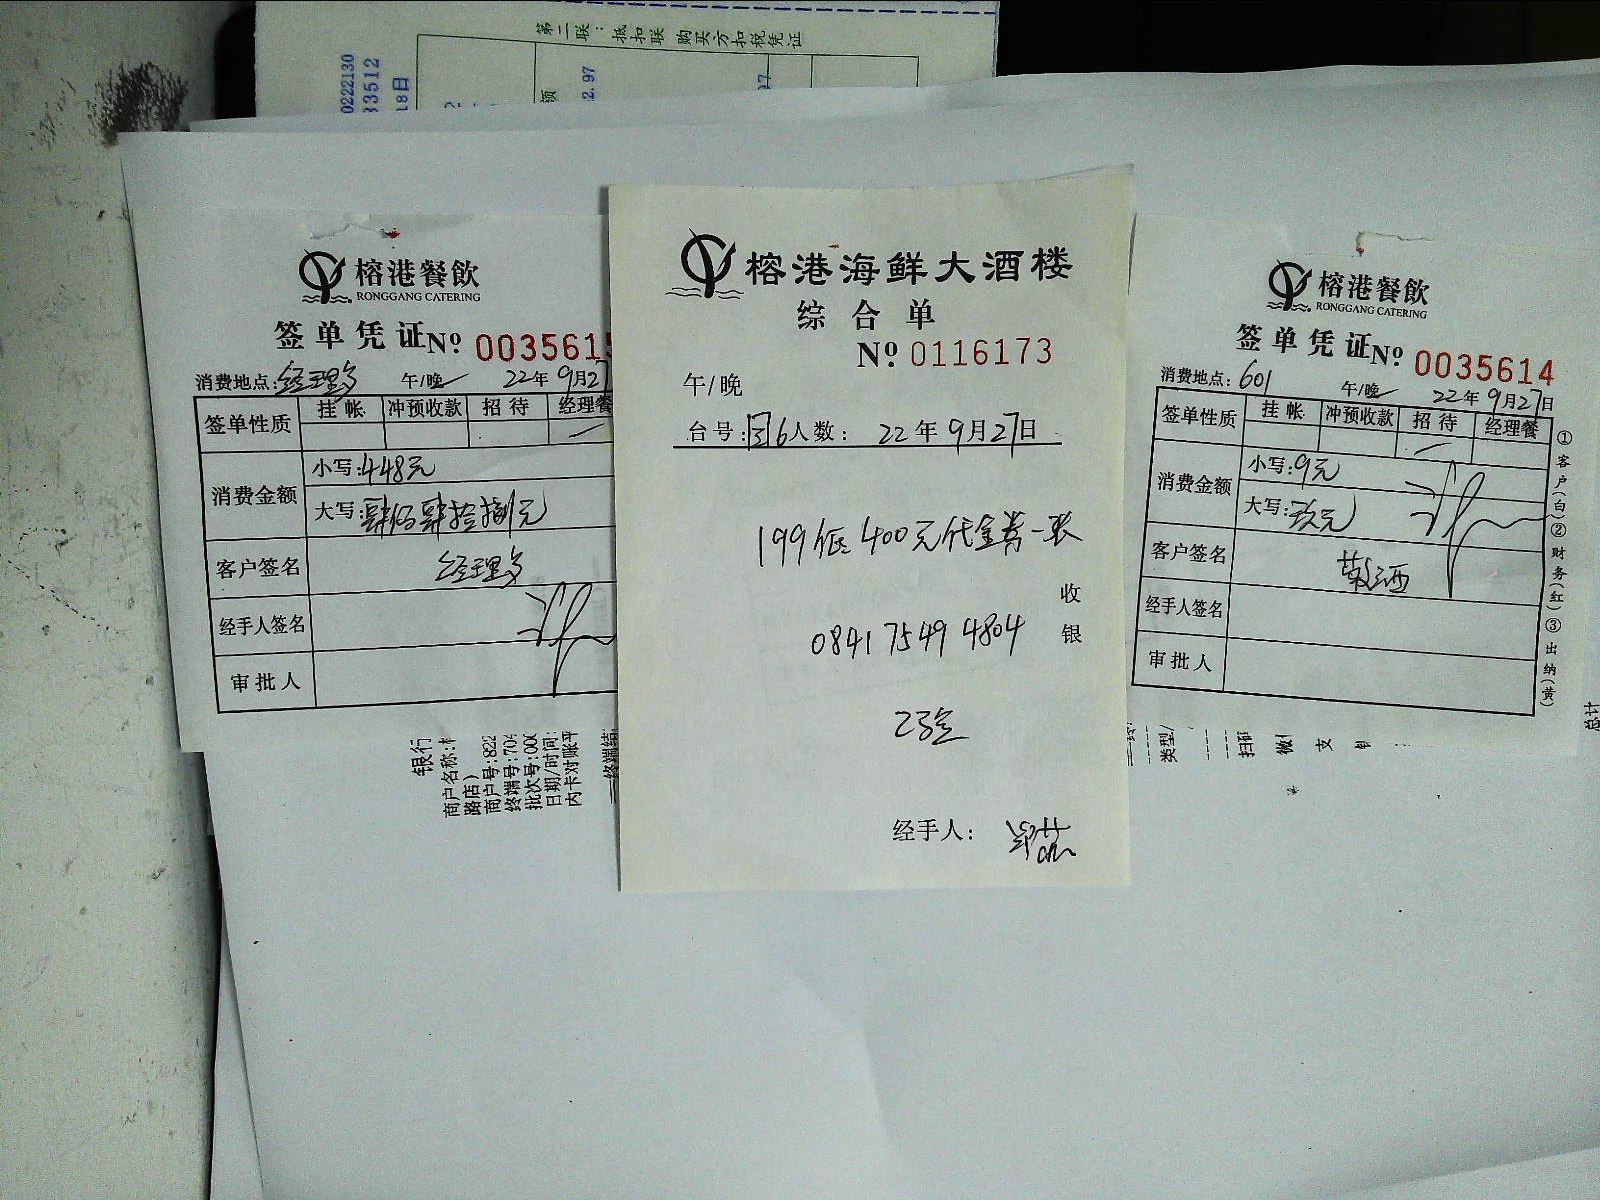 第二联：抵扣联 购买方扣税凭证
0222130
33512
18日
额
2.97
97
榕港餐飲
RONGGANG CATERING
签单凭证 Nº 003561
消费地点: 午/晚 22年9月27
签单性质 挂帐 冲预收款 招待 经理餐
消费金额
小写:448元
大写:肆佰肆拾捌元
客户签名
经手人签名
审批人
银行
商户名称:
路店)
商户号:822
终端号:704
批次号:000
日期/时间:
内卡对账平
终端结
榕港海鲜大酒楼
综合单
Nº 0116173
午/晚
台号: 人数: 22年9月27日
199低400元代金券一张
0841 7549 4804
收银
经手人:
榕港餐飲
RONGGANG CATERING
签单凭证 Nº 0035614
消费地点:601 午/晚 22年9月27日
签单性质 挂帐 冲预收款 招待 经理餐
消费金额
小写:9元
大写:玖元
客户签名
经手人签名
审批人
①客户(白)②财务(红)③出纳(黄)
类型/
扫
微
支
总计